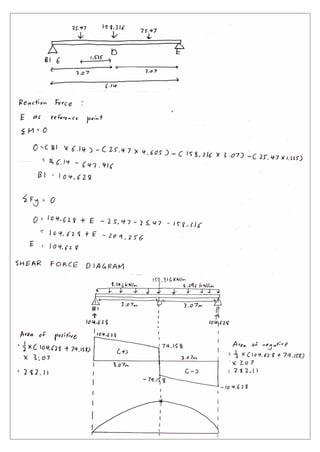 25.47 158.316 25.47
B1 6 D E
1.535
3.07 3.07
6.14
Reaction Force :
E as reference point
ΣM=0
0=(B1 x 6.14)-(25.47 x 4.605)-(158.316 x 3.07)-(25.47x1.535)
= 6.14 - 642.416
B1 = 104.628
ΣFy = 0
0= 104.628 + E - 25.47 - 25.47 - 158.316
= 104.628 + E - 209.256
E = 104.628
SHEAR FORCE DIAGRAM
158.316KN/m
8.296 kN/m 8.296 kN/m
3.07m 3.07m
B1 D E
104.628 104.628
Area of positive
= ½x(104.628 + 79.158)
x 3.07
= 282.11
104.628
79.158
(+)
3.07m
3.07m
-79.158
(-)
-104.628
Area of negative
= ½ x(104.628 + 79.158)
x 3.07
= 282.11